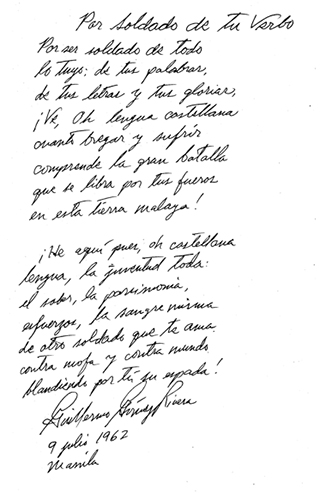 Por soldado de tu Verbo
Por ser soldado de todo
lo tuyo; de tus palabras,
de tus letras y tus glorias,
¡Ve, Oh lengua castellana
cuanto bregar y sufrir
comprende la gran batalla
que se libra por tus fueros
en esta tierra malaya!
¡He aquí pues, oh castellana
lengua, la juventud toda:
el saber, la parsimonia,
esfuerzos, la sangre misma
de otro soldado que te ama
contra mofa y contra mundo
blandiendo por tí su espada!
Guillermo Gómez Rivera
9 julio 1962
Manila